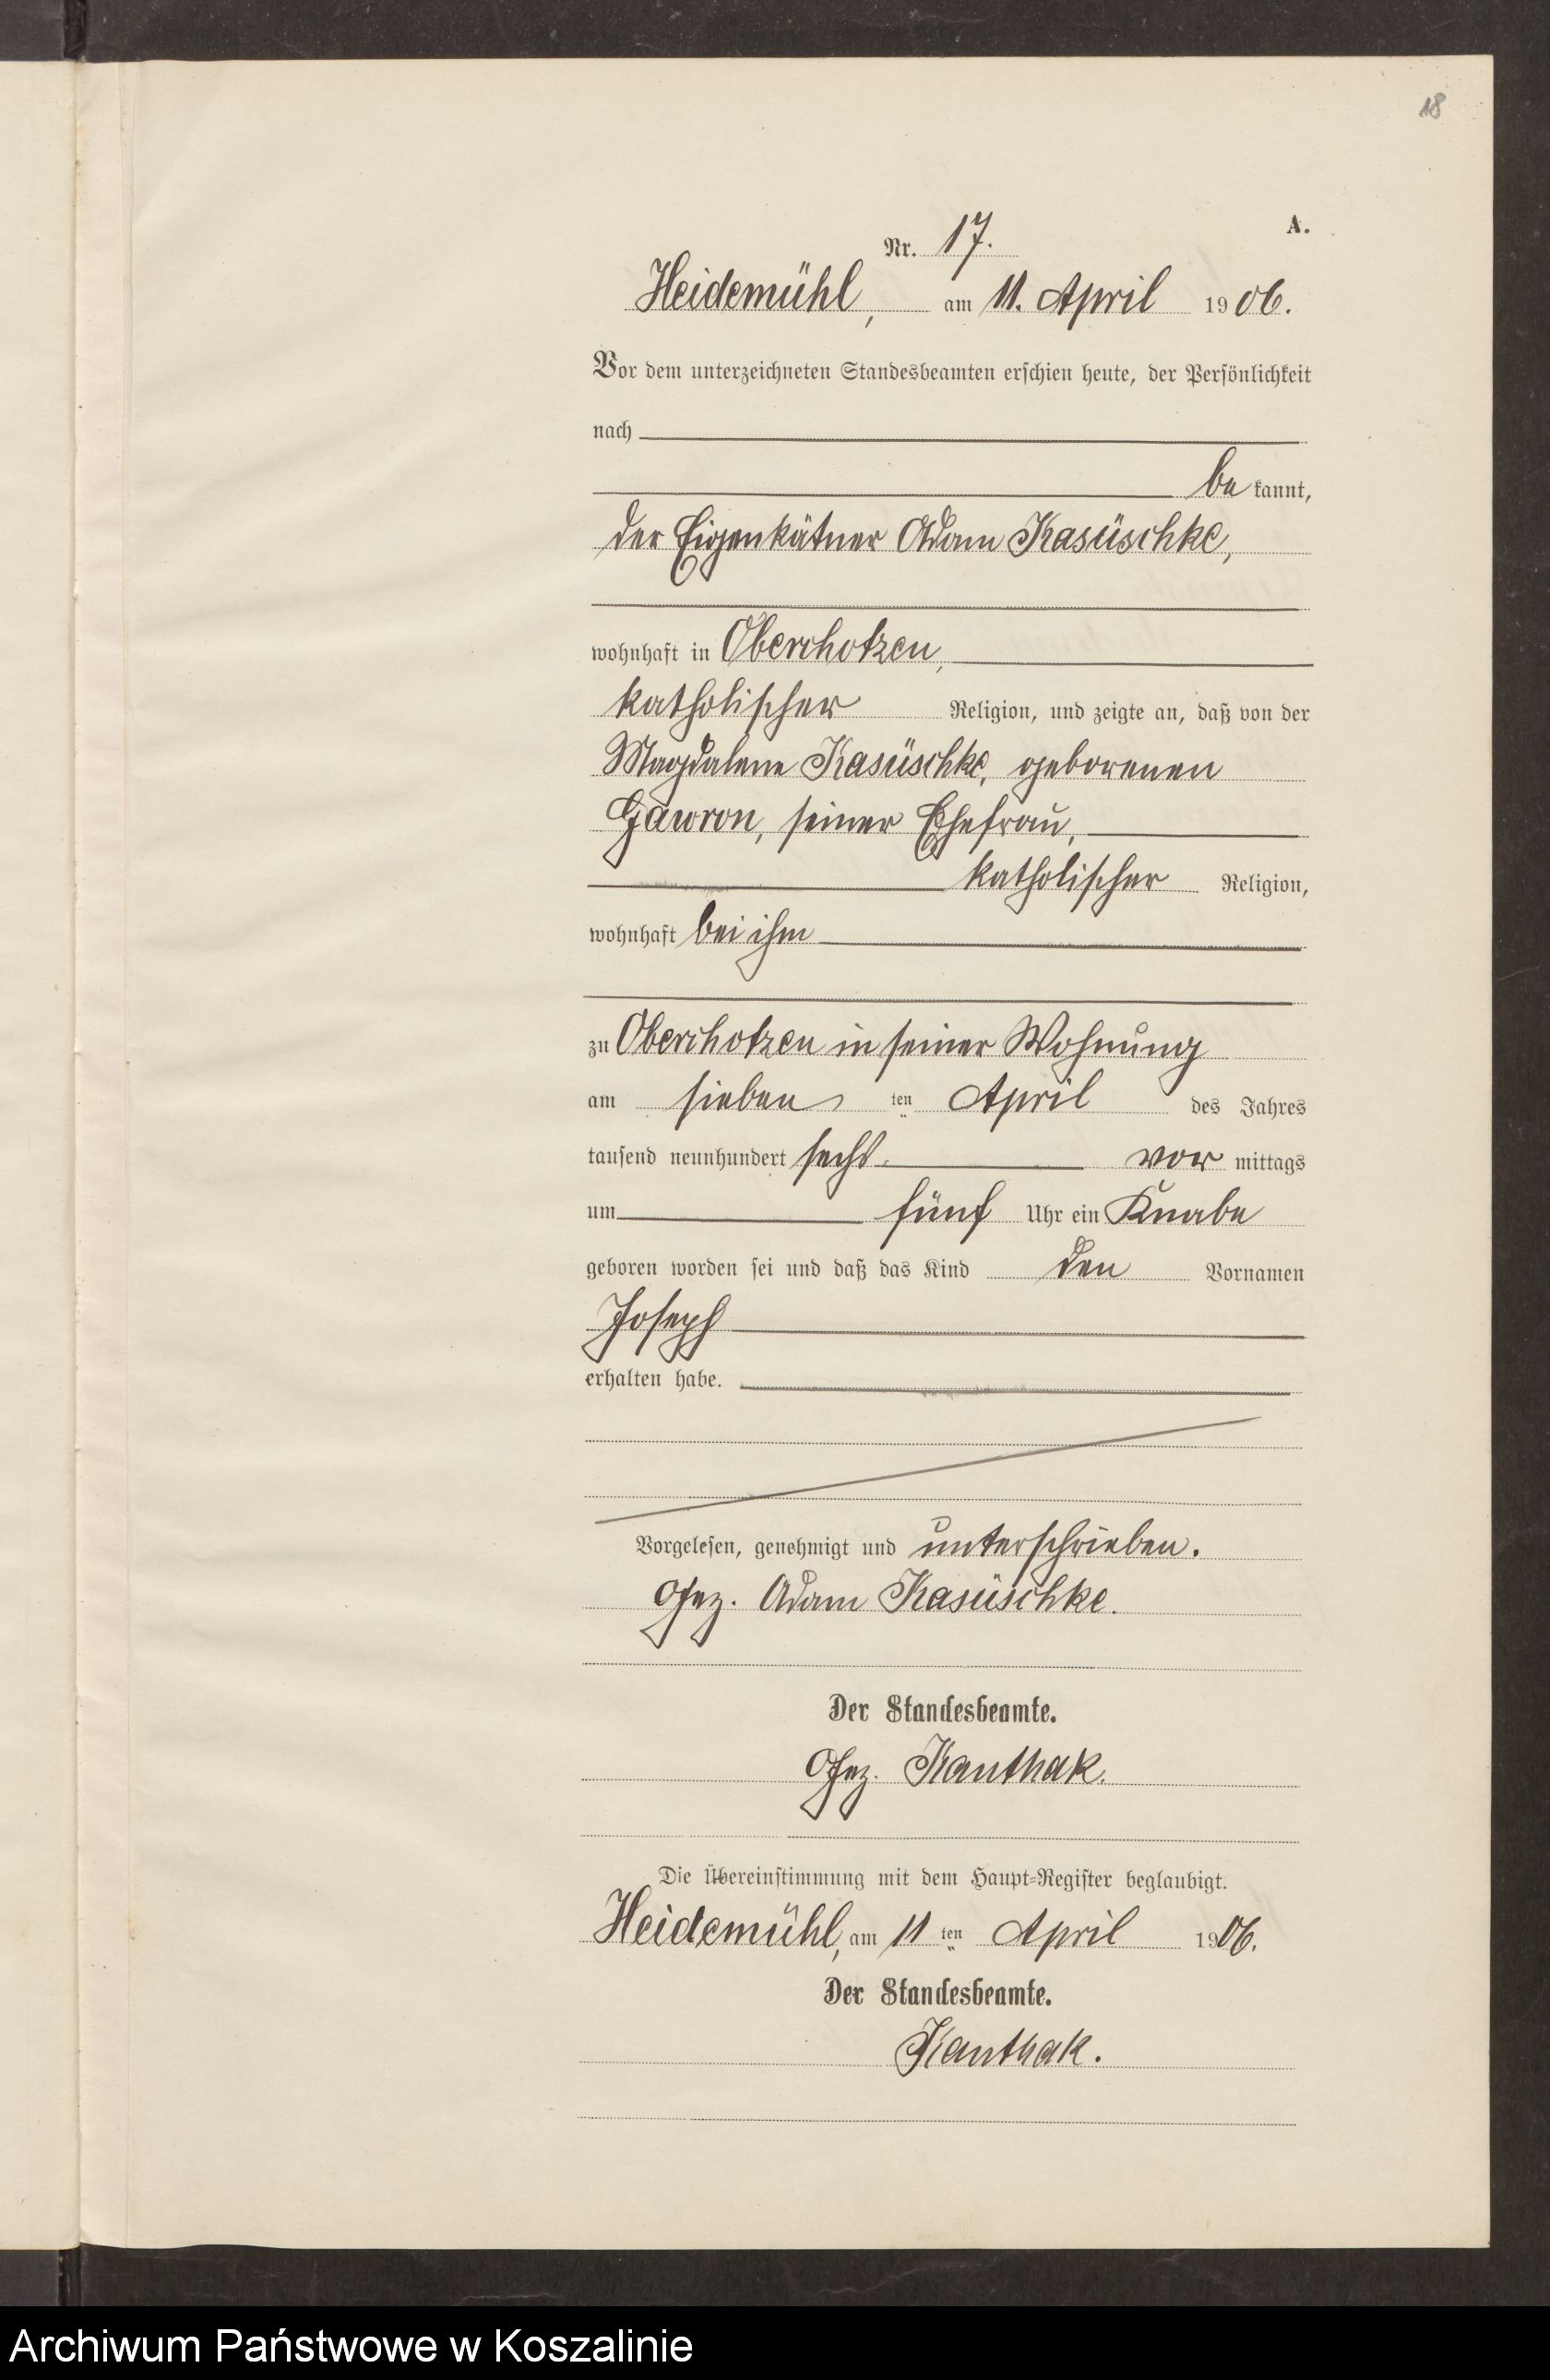 18
A.
Nr. 17.
Heidemühl, am 11. April 1906.
Vor dem unterzeichneten Standesbeamten erschien heute, der Persönlichkeit
nach
be kannt,
der Eigenkätner Adam Kasüschke,
wohnhaft in Oberchotzen,
katholischer Religion, und zeigte an, daß von der
Magdalene Kasüschke, geborenen
Gawron, seiner Ehefrau,
katholischer Religion,
wohnhaft bei ihm
zu Oberchotzen in seiner Wohnung
am sieben ten April des Jahres
tausend neunhundert sechs vor mittags
um fünf Uhr ein Knabe
geboren worden sei und daß das Kind den Vornamen
Joseph
erhalten habe.
Vorgelesen, genehmigt und unterschrieben.
Gez. Adam Kasüschke.
Der Standesbeamte.
Gez. Kanthak.
Die Übereinstimmung mit dem Haupt-Register beglaubigt.
Heidemühl, am 11 ten April 1906.
Der Standesbeamte.
Kanthak.
Archiwum Państwowe w Koszalinie